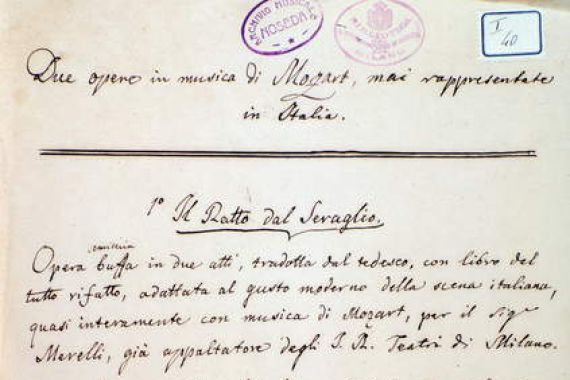 ARCHIVIO MUSICALE
NOSEDA
I
40
Due opere in musica di Mozart, mai rappresentate
in Italia.
1º Il Ratto dal Seraglio.
semiseria
Opera buffa in due atti, tradotta dal tedesco, con libro del
tutto rifatto, adattata al gusto moderno della scena italiana,
quasi interamente con musica di Mozart, per il Sigr
Merelli, già appaltatore degli I. R. Teatri di Milano.